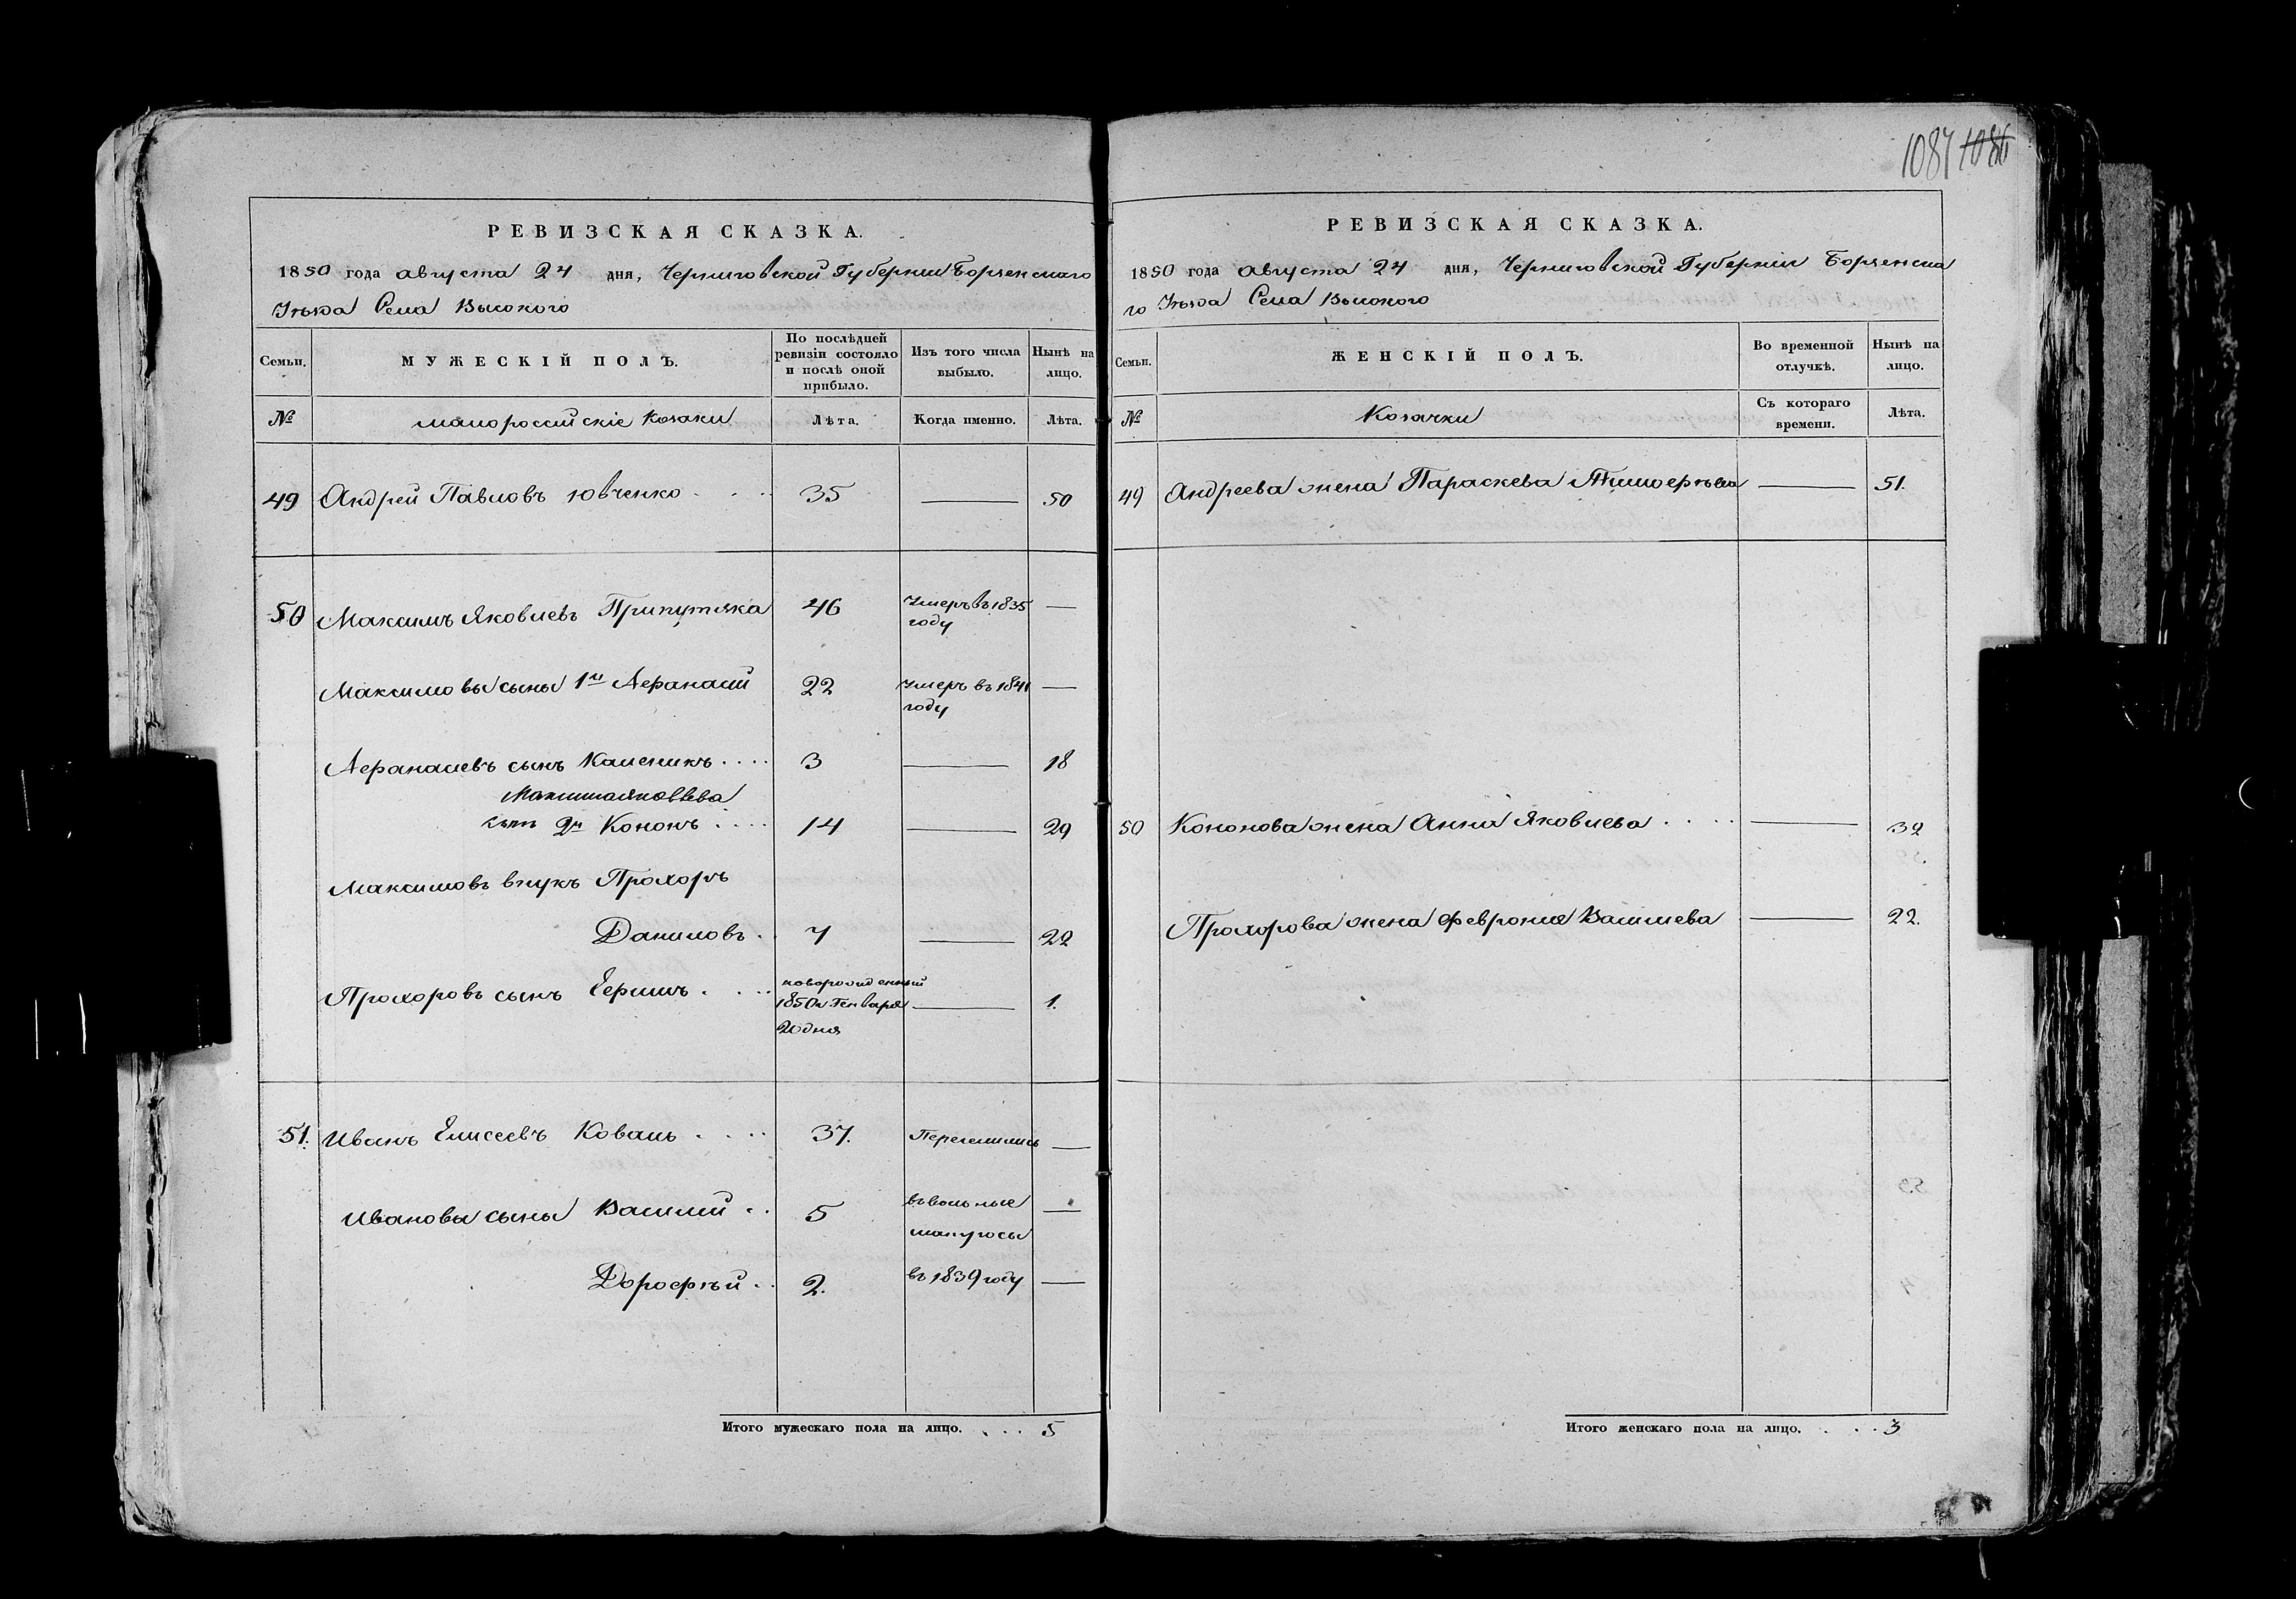 1087 1086
РЕВИЗСКАЯ СКАЗКА.
1850 года августа 24 дня, Черниговской Губерніи Борзенскаго
Уѣзда Села Высокого
Семьи. МУЖЕСКІЙ ПОЛЪ. По послѣдней ревизіи состояло и послѣ оной прибыло. Изъ того числа выбыло. Нынѣ на лицо.
№ малороссійскіе Козаки Лѣта. Когда именно. Лѣта.
49 Андрей Павловъ Ювченко 35 — 50
50 Максимъ Яковлевъ Припутняка 46 Умеръ въ 1835 году —
Максимовы сыны 1й Афанасий 22 Умеръ въ 1841 году —
Афанасиевъ сынъ Каленикъ 3 — 18
Максима Яковлева
сынъ 2й Кононъ 14 — 29
Максимовъ внукъ Прохоръ
Даниловъ 7 — 22
Прохоровъ сынъ Ефимъ новорожденный — 1.
1850г. Генваря
20 дня
51. Иванъ Елисеевъ Коваль 37. Перечислились —
Ивановы сыны Василий 5 въ вольные —
матросы
Дорофѣй 2. въ 1839 году —
Итого мужескаго пола на лицо. 5
РЕВИЗСКАЯ СКАЗКА.
1850 года августа 24 дня, Черниговской Губерніи Борзенска
го Уѣзда Села Высокого
Семьи. ЖЕНСКІЙ ПОЛЪ. Во временной отлучкѣ. Нынѣ на лицо.
№ Козачки Съ котораго времени. Лѣта.
49 Андреева жена Параскева Тимофѣева — 51.
50 Кононова жена Анна Яковлева — 32
Прохорова жена Феврония Василиева — 22.
Итого женскаго пола на лицо. 3